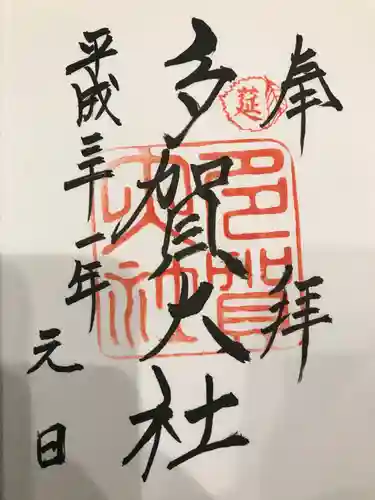 奉拝
延
多賀大社
多賀大社
平成三十一年
元日